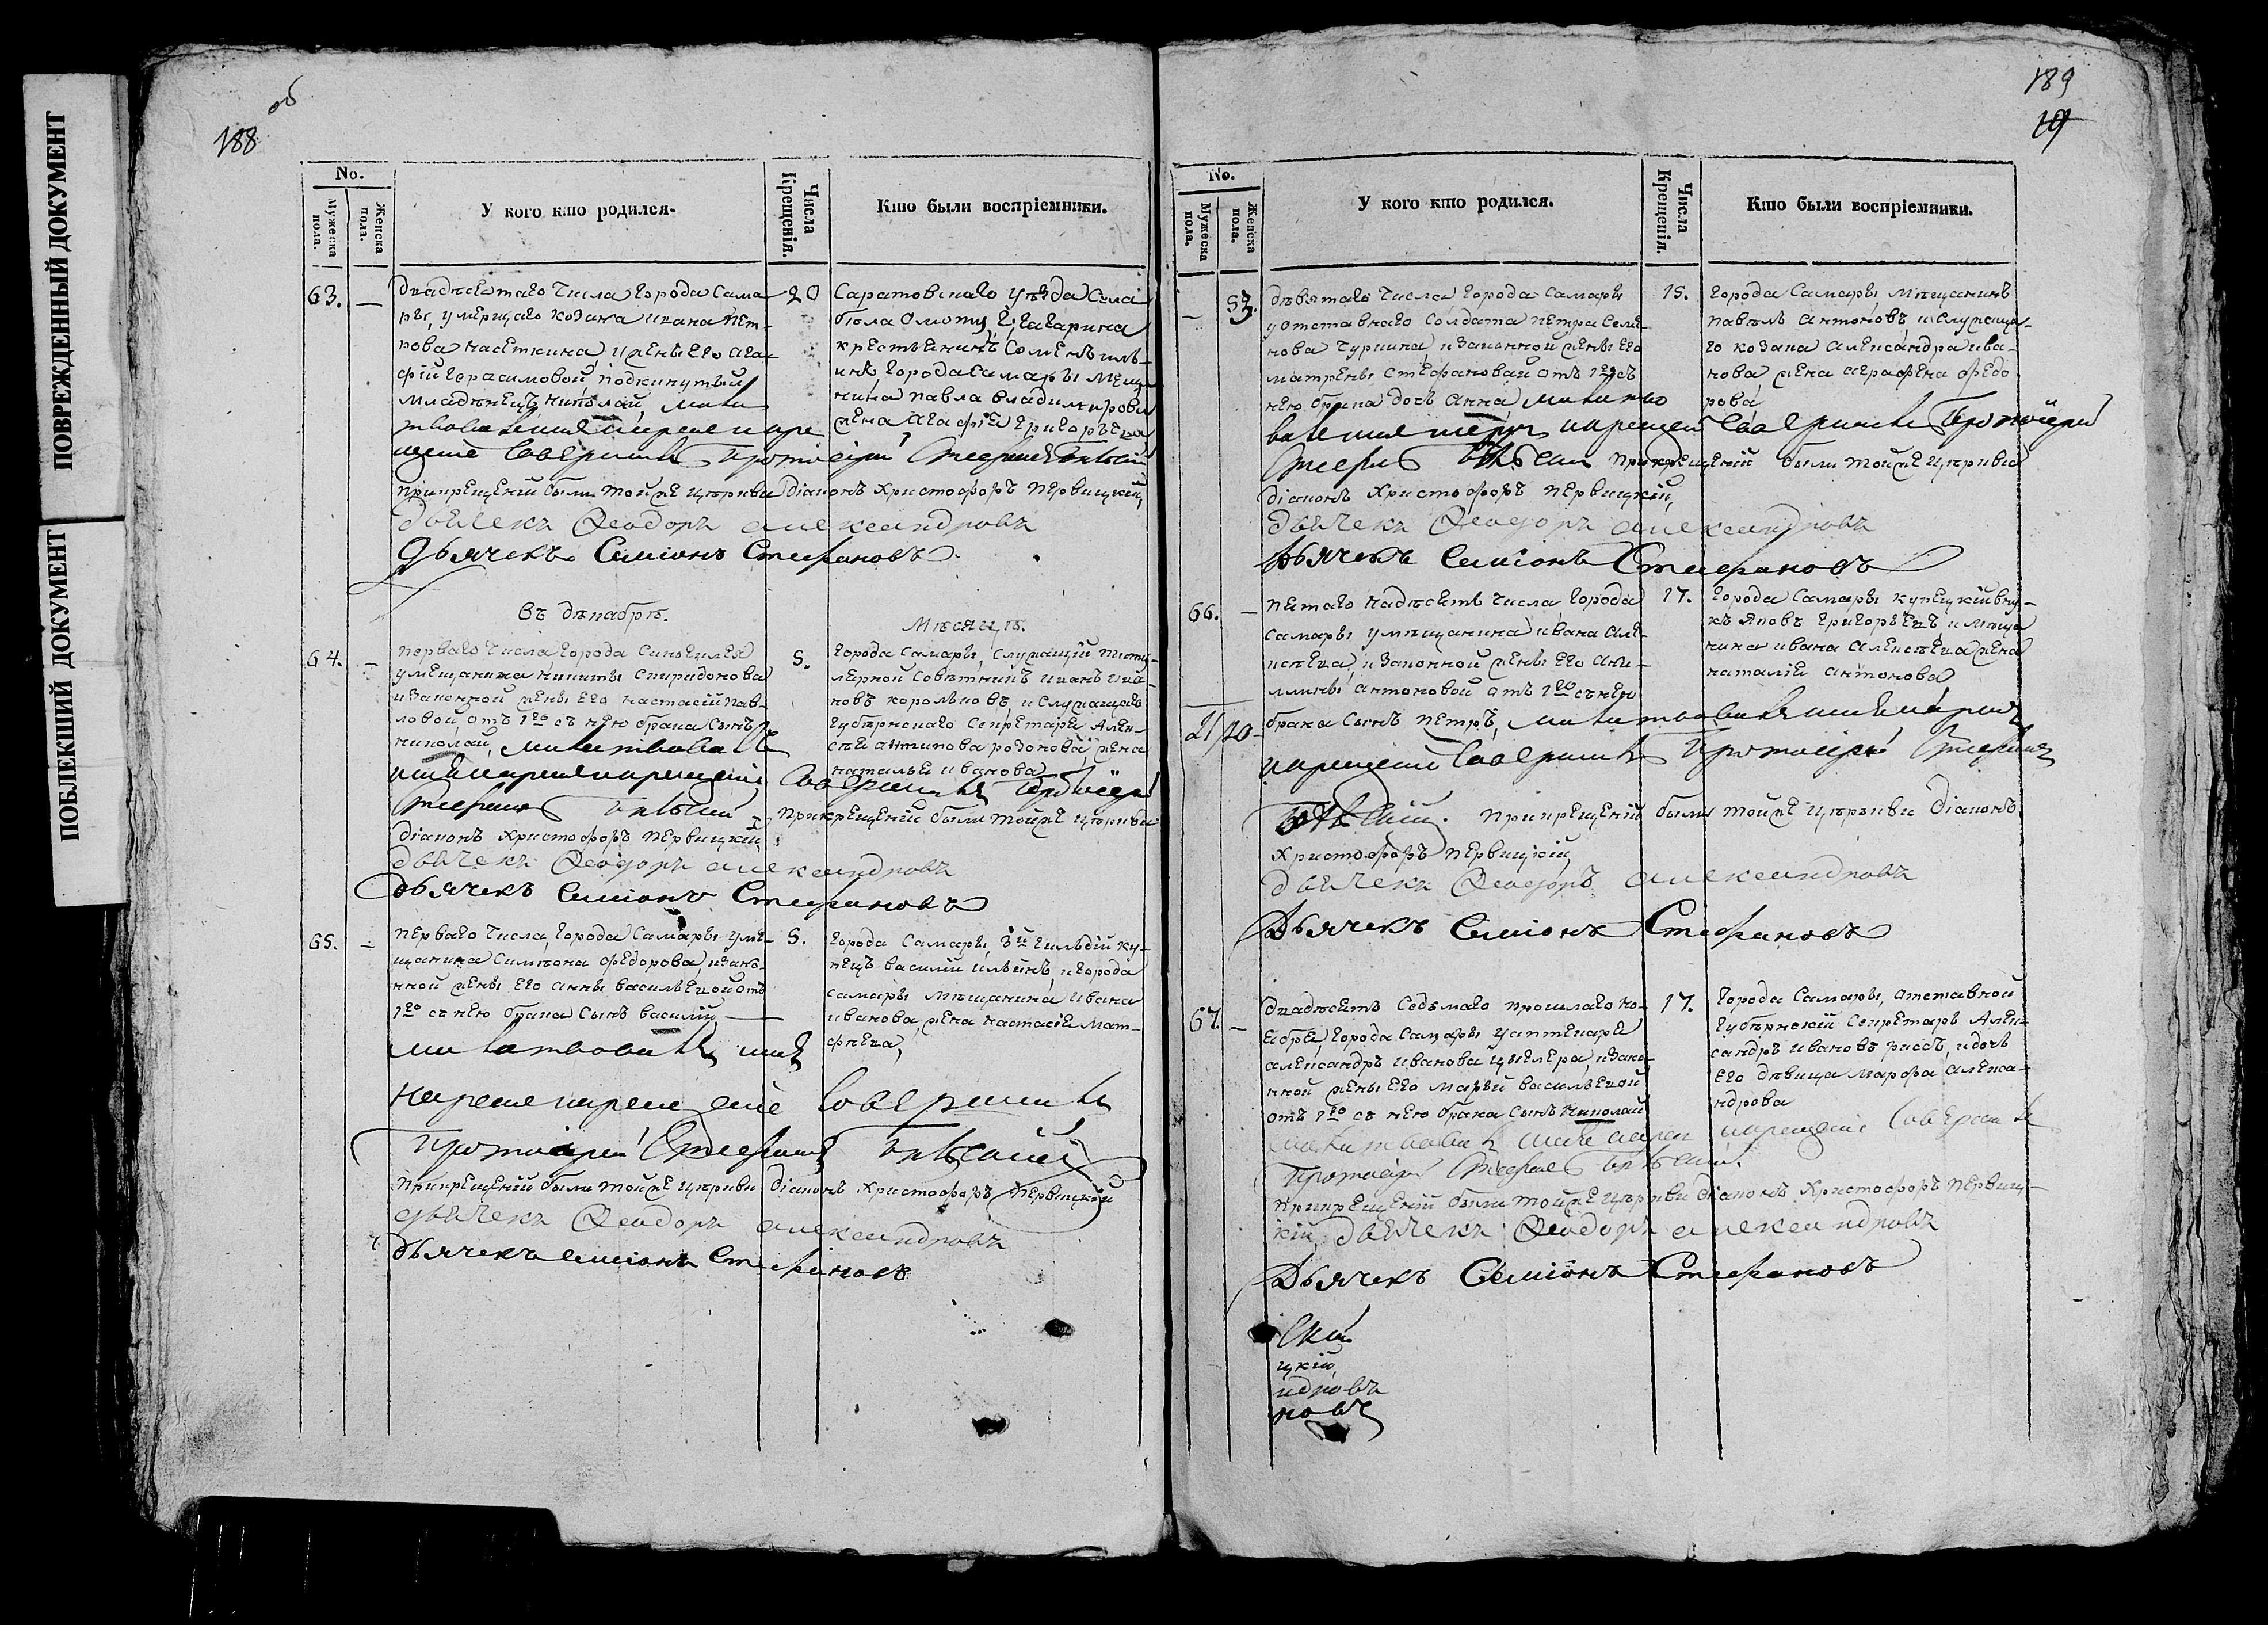 ПОВРЕЖДЕННЫЙ ДОКУМЕНТ
ПОБЛЕКШИЙ ДОКУМЕНТ
об
188
No.
Мужеска пола.
Женска пола.
У кого кто родился.
Числа Крещенія.
Кто были воспріемники.
63. —
двадесятаго числа города Сама-
ры, умершаго козака ивана Пет-
рова насеткина ижены его ага-
фіи Герасимовой подкинутый
младенецъ николай, молит
твова имя нареклъ и кре
щеніе Совершилъ Протоіерей Стефанъ
прикрещеніи были тойже церкви діаконъ Христофоръ Первицкій,
дьячекъ Ѳеодоръ александровъ
Дьячекъ Симіонъ Стефановъ
20
Саратовскаго уѣзда Села
Гагарина
крестьянинъ Сементъ иль-
инъ города Самары меща
нина Павла владимирова
жена агафія григорьева
въ декабрѣ.
Мѣсяцѣ.
64. —
перваго числа города Сингилея
умещанина никиты Спиридонова
изаконной жены его настасіи пав-
ловой, отъ 1го съ нею брака Сынъ
николай, молитвова
имя нарекъ и крещеніе Совершилъ Протоіерей
Стефанъ прикрещеніи были тойже церкви
діаконъ Христофоръ Первицкій
дьячекъ Ѳеодоръ александровъ
Дьячекъ Симіонъ Стефановъ
5.
города Самары, служащій титу-
лярной Совѣтникъ иванъ ива-
новъ корольковъ, и служащаго
губернскаго Секретаря Алек-
сѣя антипова родонова жена
наталья иванова
65. —
перваго числа, города Самары уме-
щанина Симеона Федорова, изако-
нной жены его анны васильевой отъ
1го съ нею брака Сынъ василій —
молитвова имя
нарекъ и крещеніе Совершилъ
Протоіерей Стефанъ
прикрещеніи были тойже церкви діаконъ христофоръ Первицкій
дьячекъ Ѳеодоръ александровъ
Дьячекъ Симіонъ Стефановъ
5.
города Самары, 3й гильдіи ку-
пецъ василій ильинъ, и города
самары мещанина ивана
иванова, жена настасія мат-
фѣева,
189
19
No.
Мужеска пола.
Женска пола.
У кого кто родился.
Числа Крещенія.
Кто были воспріемники.
— 53.
девятаго числа города Самары
у отставнаго солдата петра Семе-
нова Туркина, изаконной жены его
матрены Стефановой отъ 1го съ
нею брака дочь анна, молитво
ва имя нарекъ и крещеніе Совершилъ Протоіерей
Стефанъ прикрещеніи были тойже церкви
діаконъ Христофоръ Первицкій,
дьячекъ Ѳеодоръ александровъ
Дьячекъ Симіонъ Стефановъ
15.
города Самары, мещанинъ
павелъ антоновъ, и служаща-
го козака александра ива-
нова жена аграфена Федо
рова
66. —
21/20
пятаго надесять числа города
Самары умещанина ивана але-
ксѣева, изаконной жены его аки-
лины антоновой отъ 1го съ нею
брака сынъ петръ, молитвова имя нарекъ
и крещеніе Совершилъ Протоіерей Стефанъ
прикрещеніи были тойже церкви діаконъ
Христофоръ Первицкій
дьячекъ Ѳеодоръ александровъ
Дьячекъ Симіонъ Стефановъ
17.
города Самары купецкій вну-
къ яковъ григорьевъ и меща
нина ивана алексѣева жена
наталія антонова
67. —
двадесять Седьмаго прошлаго но-
ября, города Самары у аптекаря
александра иванова изако-
нной жены его марьи васильевой
отъ 1го съ нею брака сынъ николай
молитвова имя нарекъ и крещеніе Совершилъ
Протоіерей Стефанъ
прикрещеніи были тойже церкви діаконъ Христофоръ Первиц-
кій, дьячекъ Ѳеодоръ александровъ
Дьячекъ Семіонъ Стефановъ
17.
города Самары, отставной
губернскій Секретарь Алек-
сандръ ивановъ и дочь
его девица марфа алекса-
ндрова
Скій
цкій
ндровъ
новъ